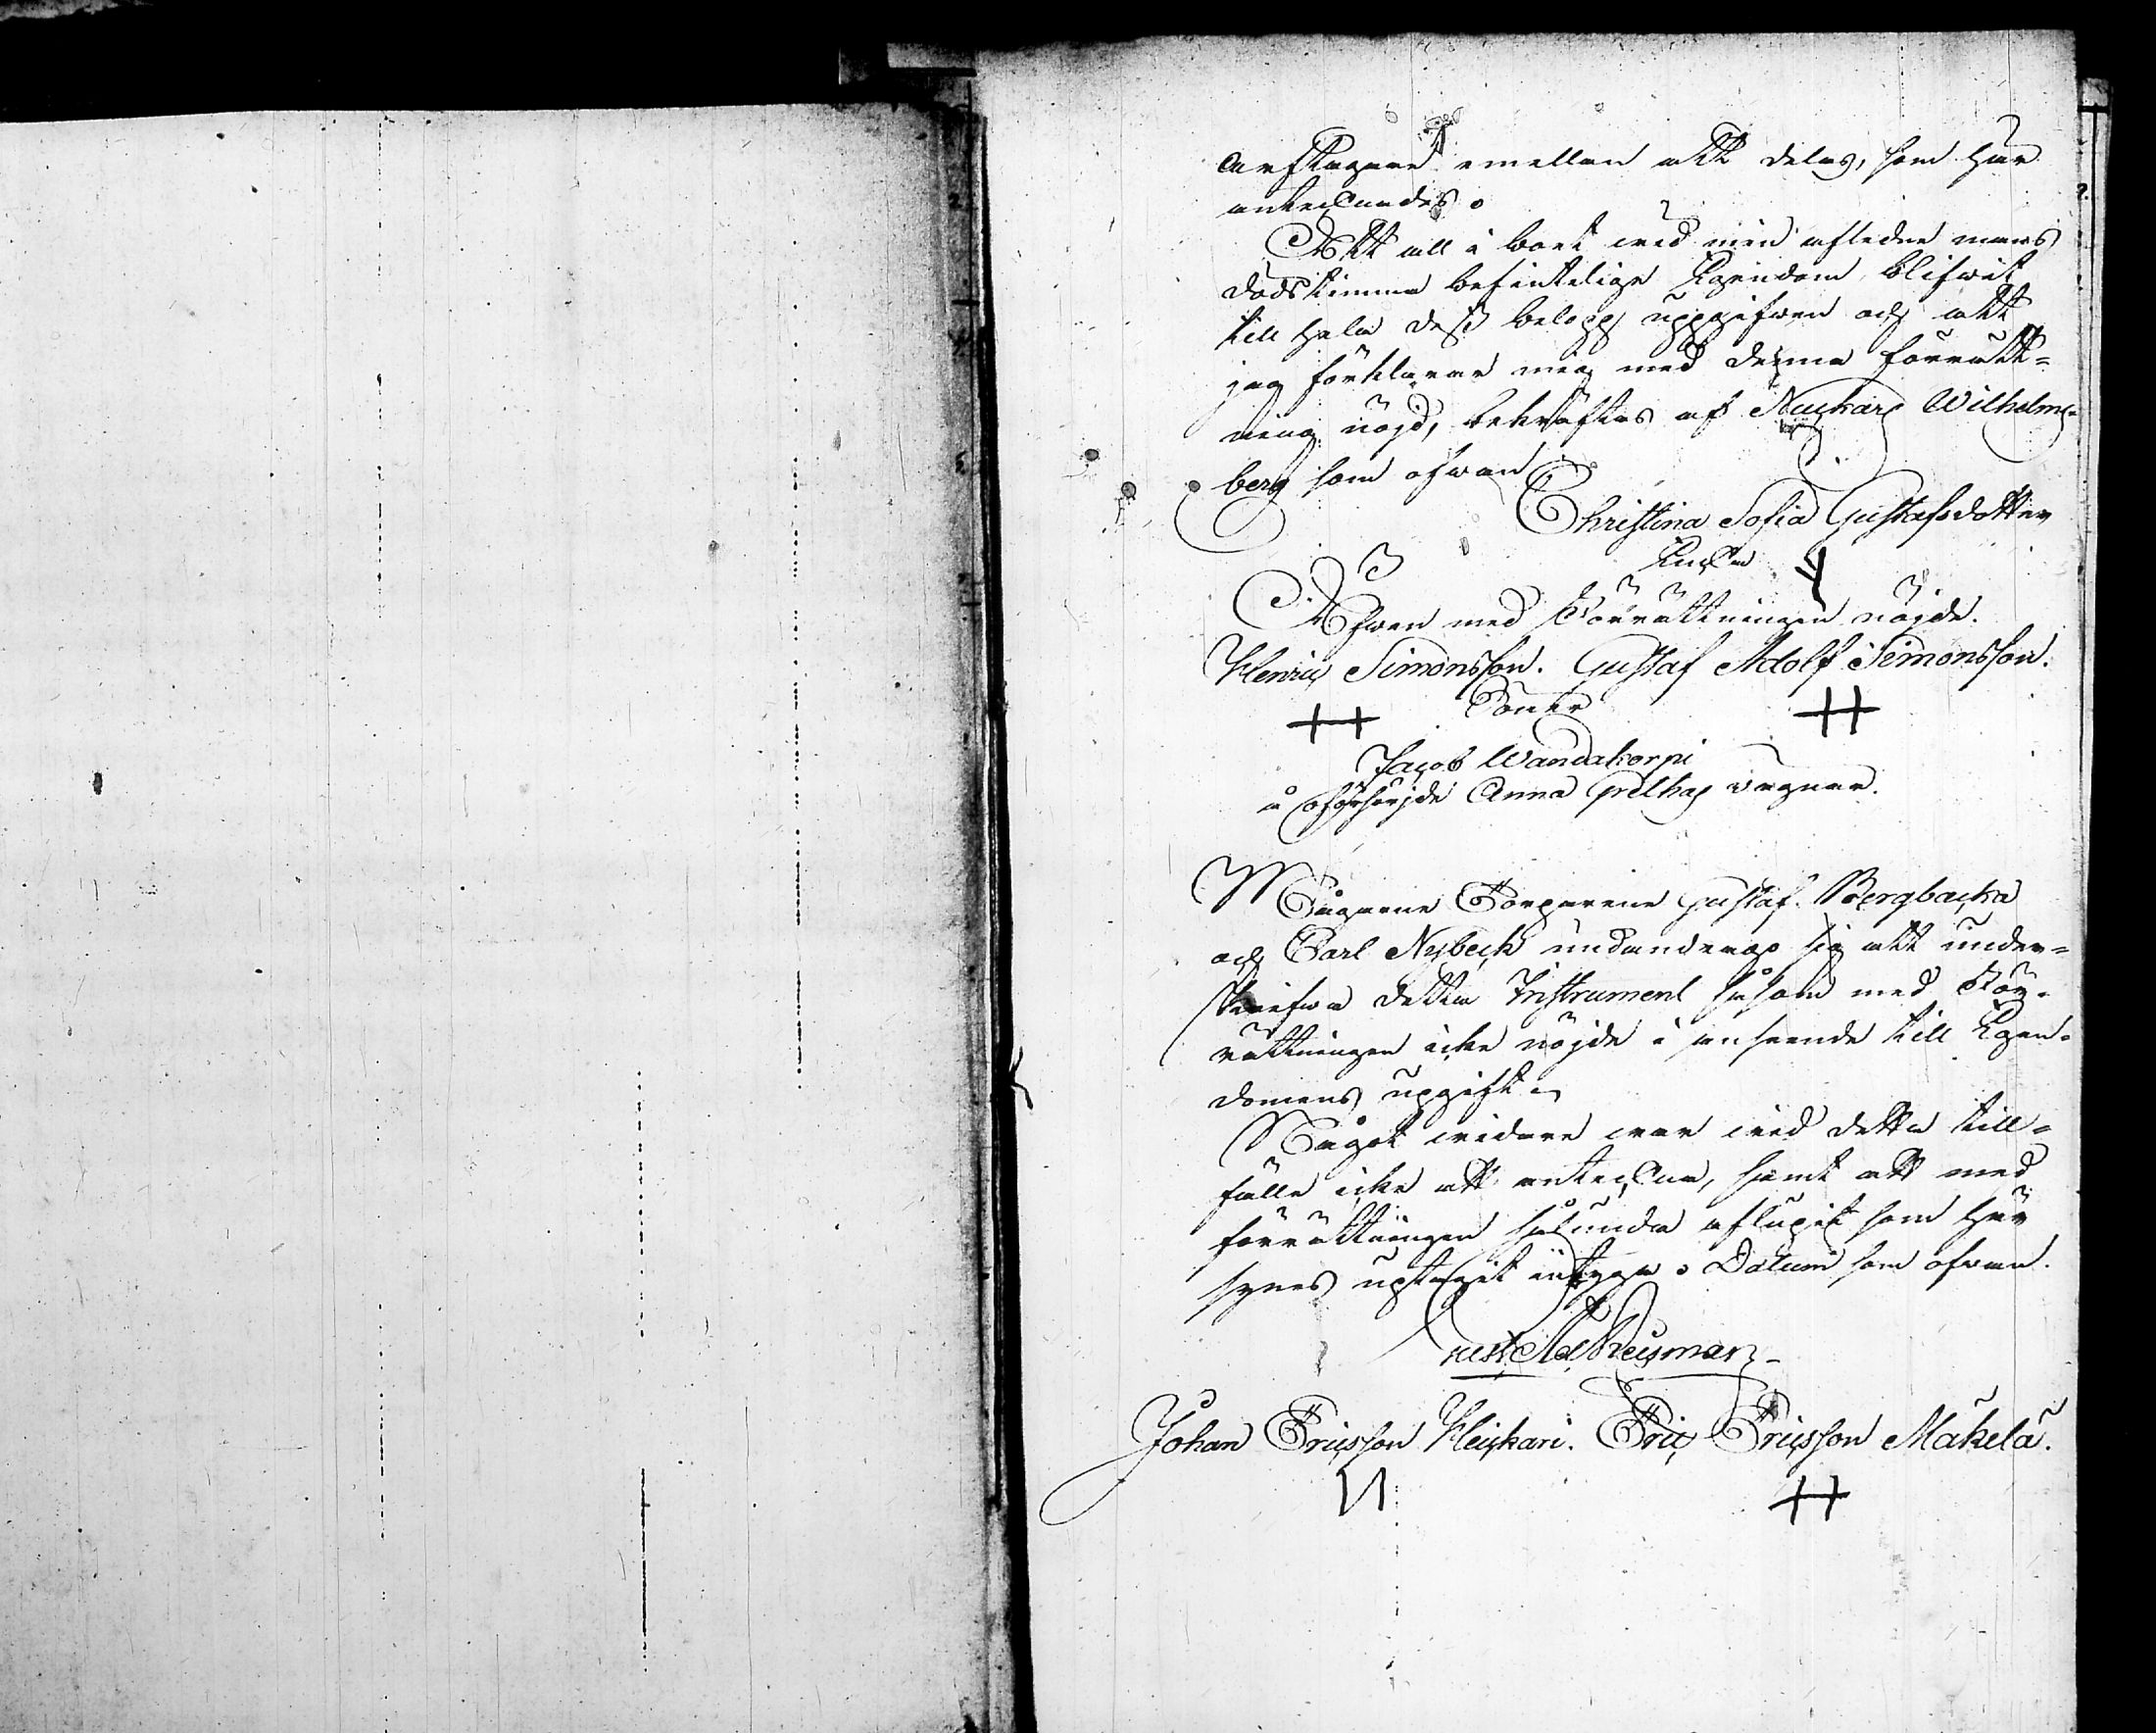 arftagare emellan att delas, som här
antecknades.
Att all i boet wid min afledne mans
dödstimma befintelige Egendom blifwit
till hela dess belopp uppgifwen och att
jag förklarar mig med denna förrätt=
ning nöjd, bekräftas af Neuhars Wilhelms-
berg som ofwan
Christina Sofia Gustafsdotter
Enka
Äfwen med Förrättningen nöjde.
Henric Simonsson. Gustaf Adolf Simonsson.
Söner
Jacob Wandakorpi
å oförsörjde Anna Grelhas wägnar.
Mågarne Torparene Gustaf Bergbacka
och Carl Nybeck undandrogo sig att under=
skrifwa detta Instrument såsom med För=
rättningen icke nöjde i anseende till Egen=
domens upgift.
Något widare war wid detta till=
fälle icke att anteckna, samt att med
förrättningen sålunda aflupit som här
synes uptagit intyga. Datum som ofwan.
Neüman
Johan Ericsson Heickari. Eric Ericsson Mäkelä.